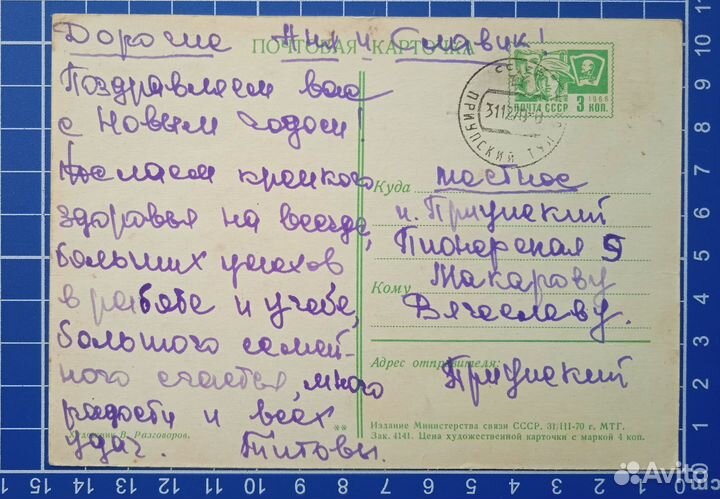 Дорогие Нил и Славик!
ПОЧТОВАЯ КАРТОЧКА
Поздравляем вас
с Новым годом!
Желаем крепкого
здоровья на всегда,
больших успехов
в работе и учебе,
большого семей-
ного счастья, много
радости и всех
удач. Титовы.
Художник В. Разговоров.
**
ПОЧТА СССР 1966
3 КОП.
31127
ПРИУПСКИЙ ТУЛ
Куда местное
п. Приупский
Пионерская 5
Кому Макарову
Вячеславу.
Адрес отправителя: Приупский
Издание Министерства связи СССР. 31/III-70 г. МТГ.
Зак. 4141. Цена художественной карточки с маркой 4 коп.
10
9
8
7
6
5
4
3
2
1
15 14 13 12 11 10 9 8 7 6 5 4 3 2 1 0 cm
Avito